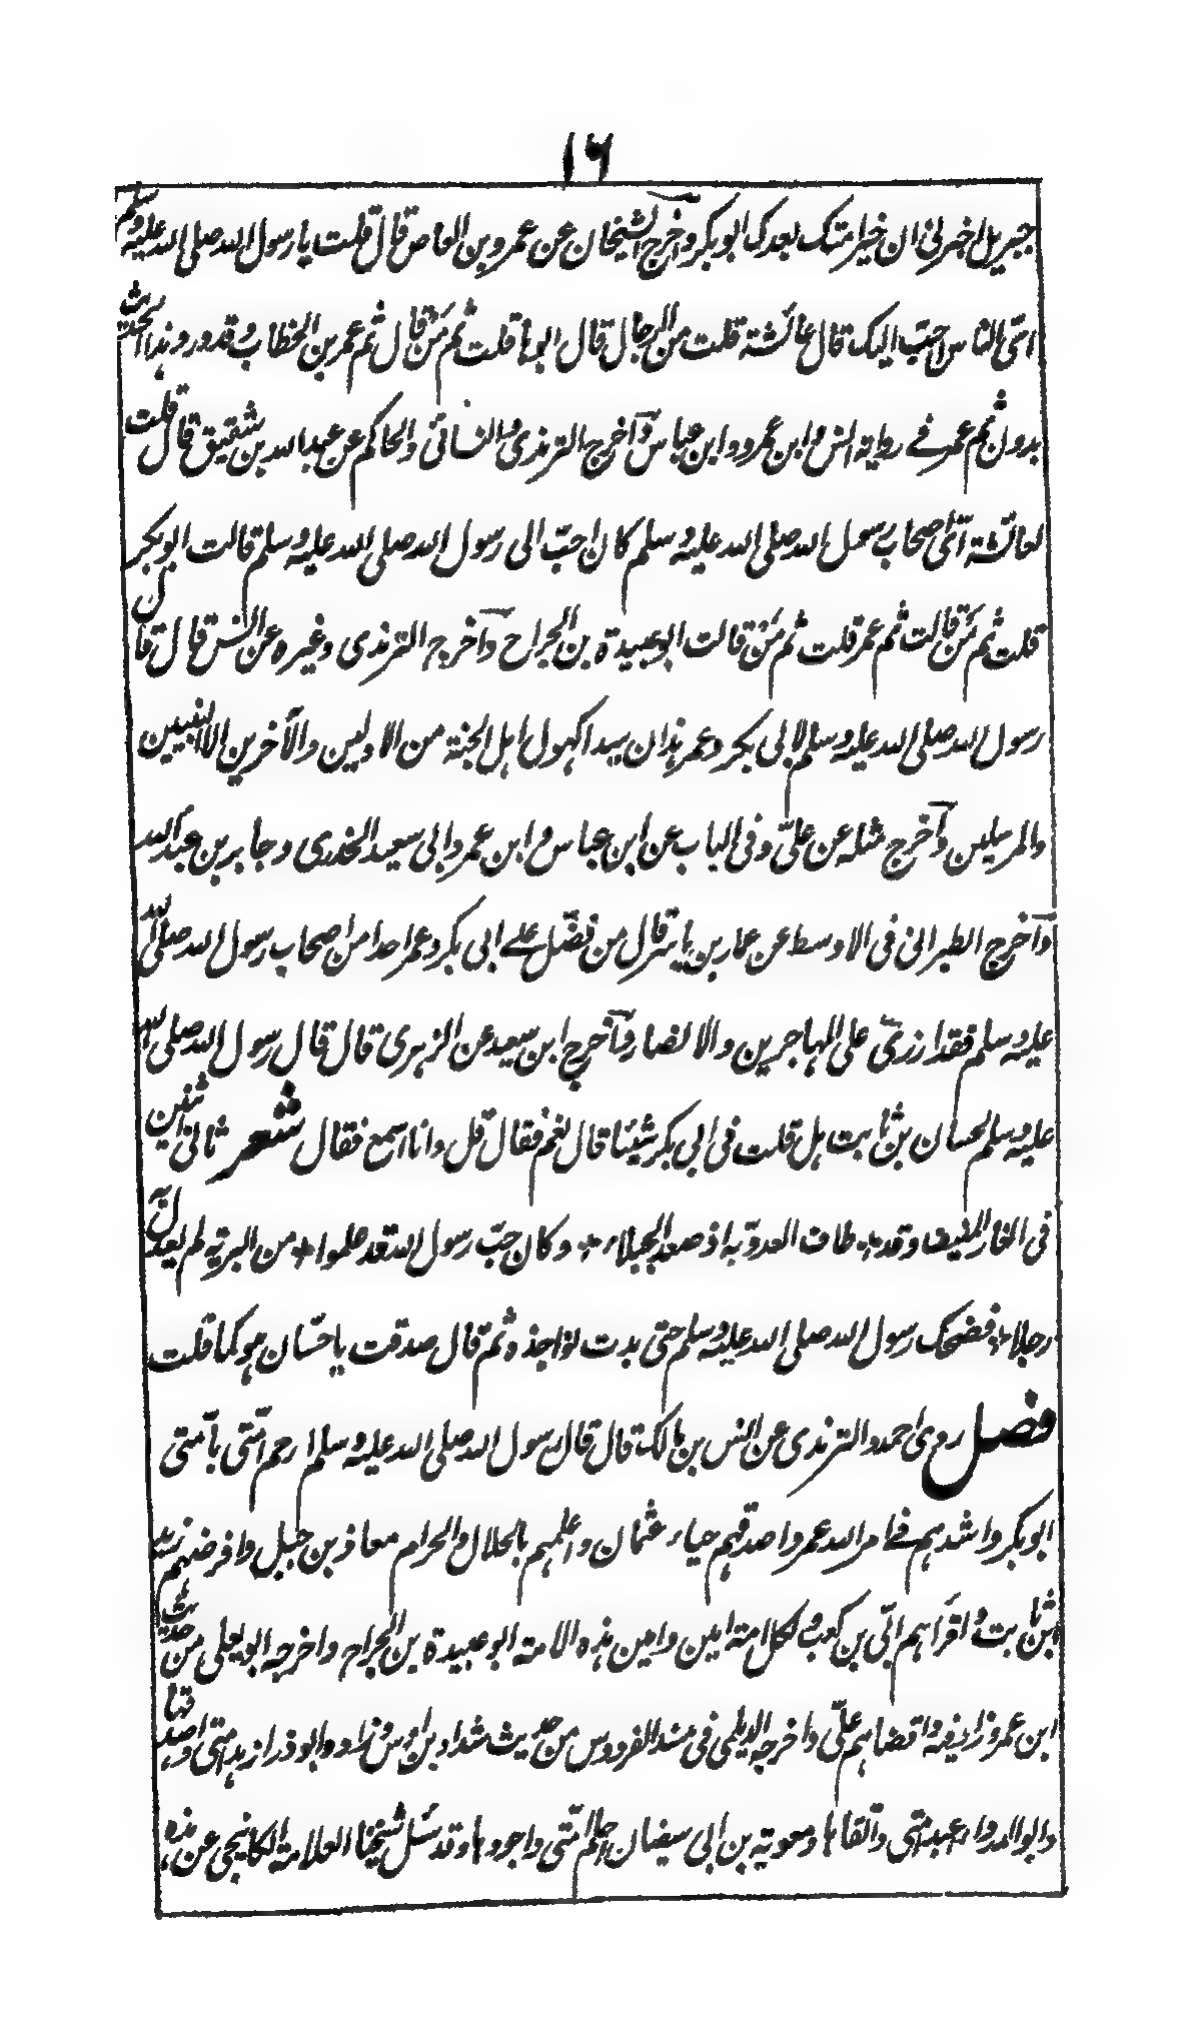 ١٦
جبريل اخبرني ان خير امتك بعدك ابو بكر واخرج الشيخان عن عمرو بن العاص قال قلت يا رسول الله صلى الله عليه وسلم
اى الناس احب اليك قال عائشة قلت من الرجال قال ابوها قلت ثم من قال ثم عمر بن الخطاب وقد ورد هذا الحديث
بدون ثم عمر في رواية انس وابن عمرو وابن عباس واخرج الترمذي والنسائي والحاكم عن عبد الله بن شقيق قال قلت
لعائشة اى اصحاب رسول الله صلى الله عليه وسلم كان احب الى رسول الله صلى الله عليه وسلم قالت ابو بكر
قلت ثم من قالت ثم عمر قلت ثم من قالت ابو عبيدة بن الجراح واخرج الترمذي وغيره عن انس قال قال
رسول الله صلى الله عليه وسلم لابي بكر وعمر هذان سيدا كهول اهل الجنة من الاولين والآخرين الا النبيين
والمرسلين واخرج مثله عن علي وفي الباب عن ابن عباس وابن عمر وابي سعيد الخدري وجابر بن عبد الله
واخرج الطبراني في الاوسط عن عمار بن ياسر قال من فضل على ابي بكر وعمر احدا من اصحاب رسول الله صلى الله
عليه وسلم فقد ازرى على المهاجرين والانصار واخرج ابن سعيد عن الزهري قال قال رسول الله صلى الله
عليه وسلم لحسان بن ثابت هل قلت في ابي بكر شيئا قال نعم فقال قل وانا اسمع فقال شعر ثاني اثنين
في الغار المنيف وقد * طاف العدو به اذ صعد الجبلا * وكان حب رسول الله قد علموا * من البرية لم يعدل به
رجلا * فضحك رسول الله صلى الله عليه وسلم حتى بدت نواجذه ثم قال صدقت يا حسان هو كما قلت
فصل روى احمد والترمذي عن انس بن مالك قال قال رسول الله صلى الله عليه وسلم ارحم امتى بامتى
ابو بكر واشدهم في امر الله عمر واصدقهم حياء عثمان واعلمهم بالحلال والحرام معاذ بن جبل وافرضهم زيد
بن ثابت واقرأهم ابي بن كعب ولكل امة امين وامين هذه الامة ابو عبيدة بن الجراح واخرجه ابو يعلى من حديث
ابن عمر وزاد فيه واقضاهم علي واخرجه الديلمي في مسند الفردوس من حديث شداد بن اوس وزاد وابو ذر ازهد امتى واصدقها
وابو الدرداء اعبد امتى واتقاها ومعوية بن ابي سفيان احلم امتى واجودها وقد سئل شيخنا العلامة الكافيجي عن هذه